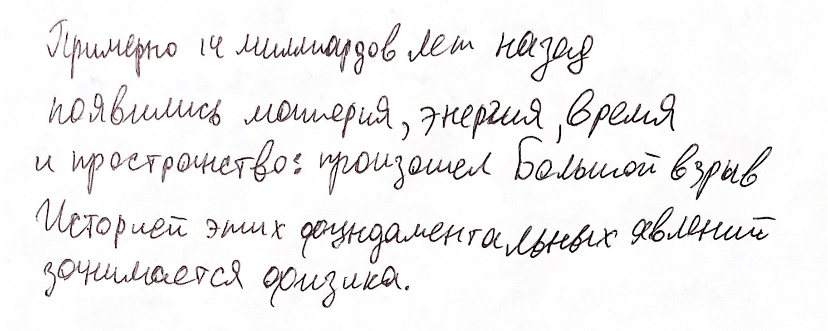 Примерно 14 миллиардов лет назад
появились материя, энергия, время
и пространство: произошел Большой взрыв
Историей этих фундаментальных явлений
занимается физика.